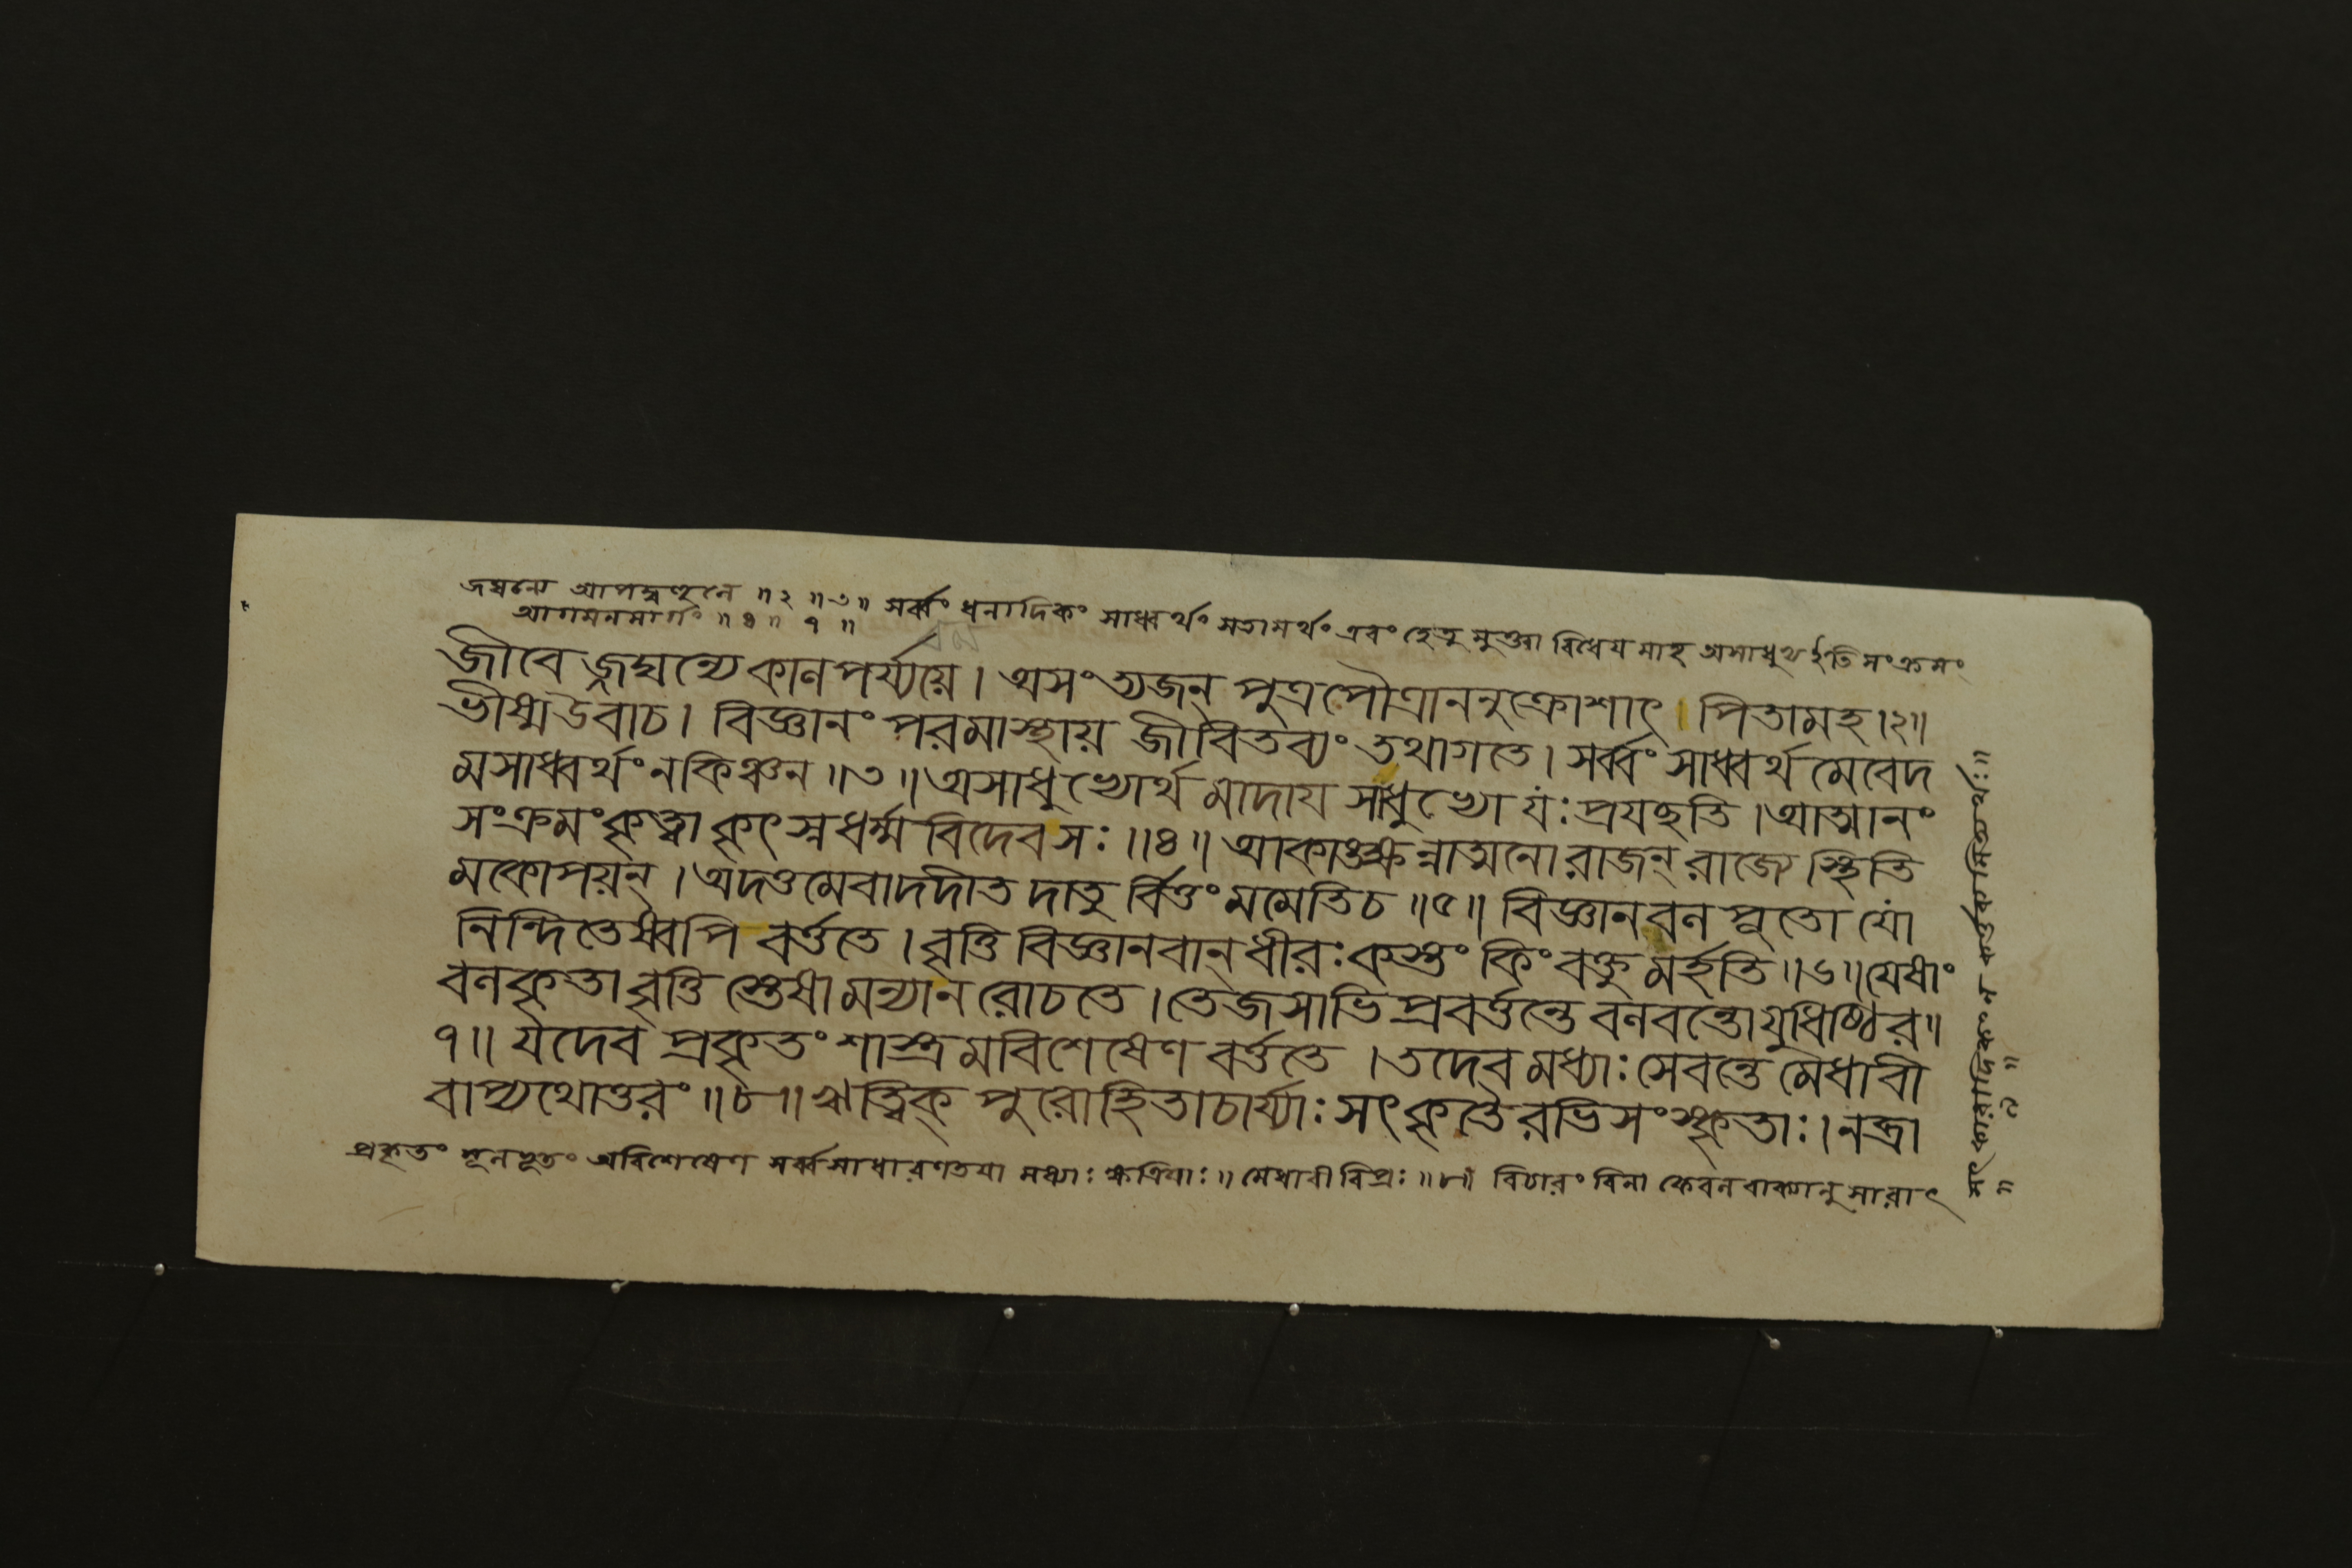 জঘন্যে আপদ্বহুলে ॥২॥৩॥ সর্ব্বং ধনাদিকং সাধ্বর্থং সতামর্থং এবং হেতু মুক্ত্বা বিধেয় মাহ অসাধুভ্য ইতি সংক্রমং
আগমনমার্গং ॥৪॥ ৭॥
জীবেজ্জঘন্যেকালপর্য্যয়ে। অসংত্যজন্ পুত্রপৌত্রাননুক্রোশাৎ। পিতামহ।২॥
ভীষ্মউবাচ। বিজ্ঞানং পরমাস্থায় জীবিতব্যং তথাগতে। সর্ব্বং সাধ্বর্থ মেবেদ
মসাধ্বর্থং নকিঞ্চন॥৩॥ অসাধুভ্যোর্থ মাদায় সাধুভ্যো যঃ প্রযচ্ছতি। আত্মানং
সংক্রমংকৃত্বা কৃৎস্নধর্ম্ম বিদেবসঃ॥৪॥ আকাঙ্ক্ষন্নাত্মনো রাজন্ রাজ্যে স্থিতি
মকোপয়ন্। অদত্তমেবাদদীত দাতু র্বিত্তং মমেতিচ॥৫॥ বিজ্ঞানবল পূতো যো
নিন্দিতেষ্বপি বর্ত্ততে। বৃত্তি বিজ্ঞানবান্ ধীরঃ কস্তং কিং বক্তু মর্হতি॥৬॥ যেষাং
বলকৃতা বৃত্তি স্তেষা মন্যান রোচতে। তেজসাভি প্রবর্ত্তন্তে বলবন্তো যুধিষ্ঠির॥
৭॥ যদেব প্রকৃতং শাস্ত্র মবিশেষেণ বর্ত্ততে। তদেব মধ্যাঃ সেবন্তে মেধাবী
বাপ্যথোত্তরং॥৮॥ ঋত্বিক্ পুরোহিতাচার্য্যাঃ সৎকৃতৈরভিসংস্কৃতাঃ। নব্রা
প্রকৃতং মূলভূতং অবিশেষেণ সর্ব্বসাধারণতয়া মধ্যাঃ ক্ষত্রিয়াঃ॥ মেধাবী বিপ্রঃ॥৮॥ বিচারং বিনা কেবল বাক্যানু সারাৎ